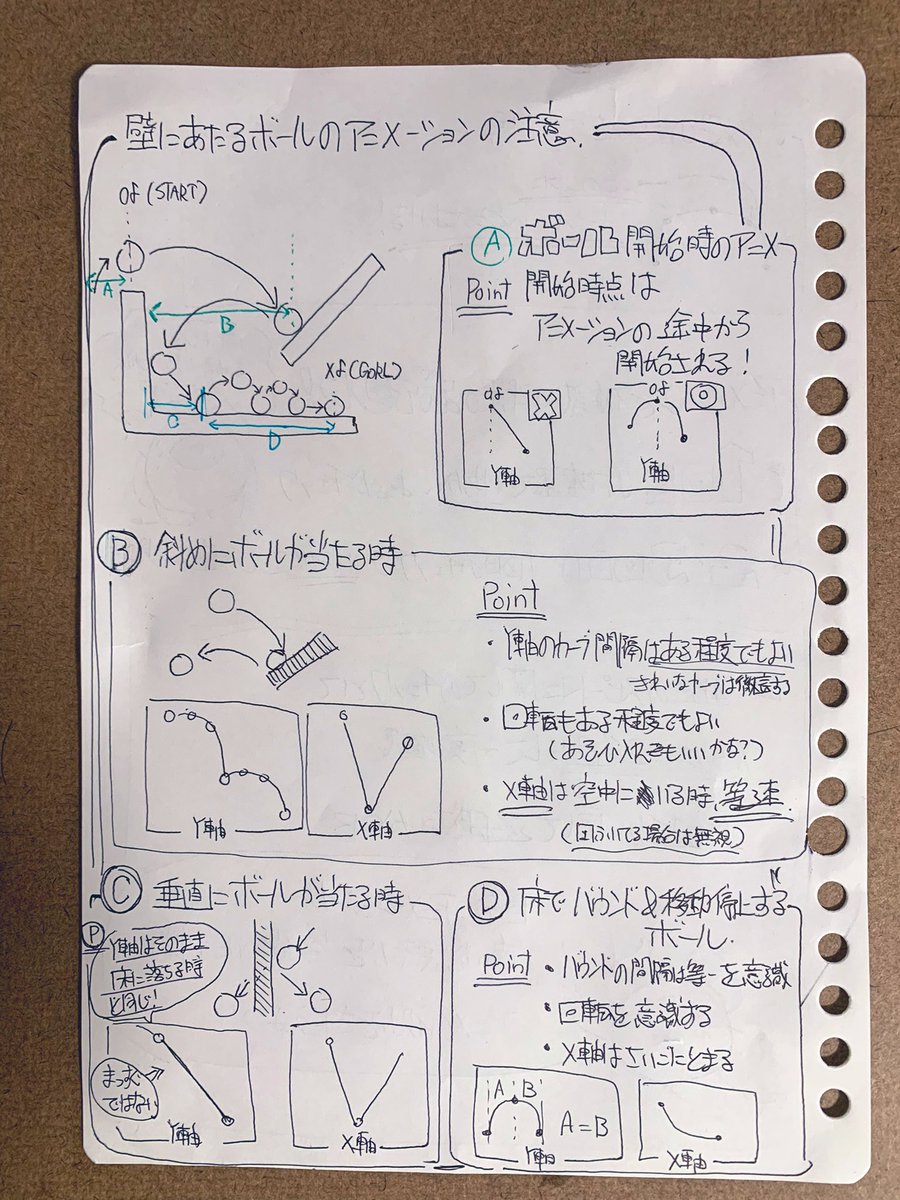 壁にあたるボールのアニメーションの注意.
0f (START)
A
B
C
D
Xf (GORL)
Ⓐ 開始時のアニメ
Point 開始時点は
アニメーションの途中から
開始される!
0f
Y軸
0f
Y軸
Ⓑ 斜めにボールが当たる時
Point
・Y軸のカーブ間隔はある程度でもよい
・回転もある程度でもよい
(あそび入れてもいいかな?)
・X軸は空中にいる時、等速.
Y軸
X軸
Ⓒ 垂直にボールが当たる時
Ⓟ Y軸はそのまま
床に落ちる時
と同じ!
まっすぐ
ではない
Y軸
X軸
Ⓓ 床でバウンド&移動停止する
ボール.
Point ・バウンドの間隔は等一を意識
・回転を意識する
・X軸はさいごにとまる
A B
A=B
Y軸
X軸